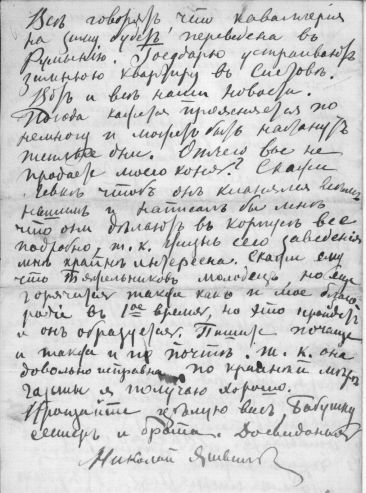 Всѣ говорятъ что кавалерія
на зиму будетъ переведена въ
Румынію. Государю устраиваютъ
зимнюю квартиру въ Систовѣ.
Вотъ и всѣ наши новости.
Погода кажется проясняется по
немногу и можетъ быть настанутъ
теплые дни. Отчего вы не
продаете моего коня? Скажи
чтобъ онъ кланялся всѣмъ
нашимъ и написалъ бы мнѣ
что они дѣлаютъ въ корпусѣ все
подробно, т.к. жизнь сего заведенія
мнѣ крайне интересна. Скажи ему
что Тяжельниковъ молодецъ но еще
горячится также какъ и мое благо
родіе въ 1ое время, но это пройдетъ
и онъ образуется. Пишите почаще
и также и по почтѣ. т.к. она
довольно исправна по крайней мѣрѣ
я получаю хорошо.
Прощайте цѣлую васъ, Бабушку
сестеръ и брата. Досвиданья
Николай